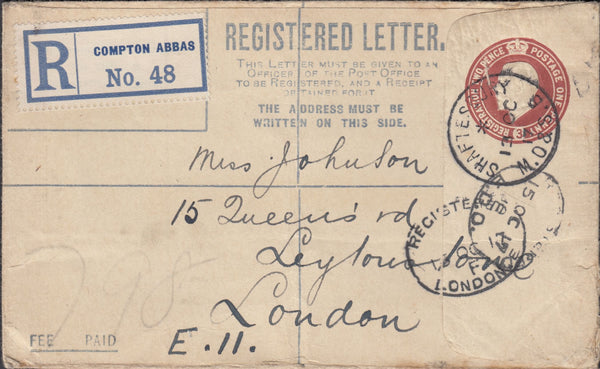 R
COMPTON ABBAS
No. 48
REGISTERED LETTER.
THIS LETTER MUST BE GIVEN TO AN
OFFICER OF THE POST OFFICE
TO BE REGISTERED, AND A RECEIPT
OBTAINED FOR IT.
THE ADDRESS MUST BE
WRITTEN ON THIS SIDE.
POSTAGE ON
TWO PENCE
REGISTRATION
SHAFTESBURY
15 OC
REGISTERED
LONDON
Miss Johnson
15 Queen's rd
Leytonstone
London
E. 11.
FEE PAID